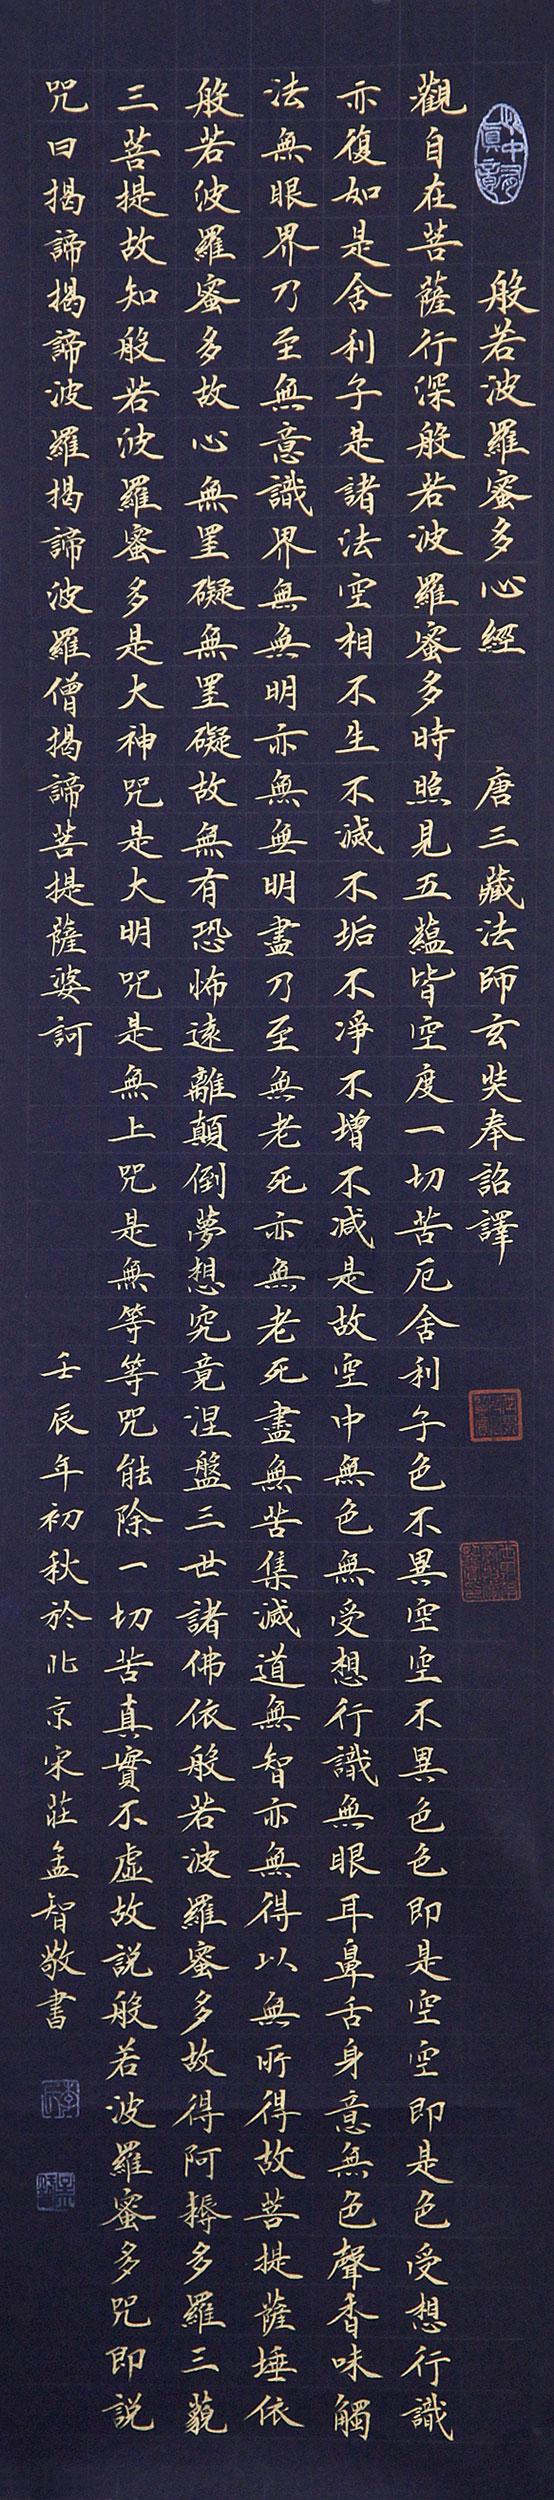 般若波羅蜜多心經 唐三藏法師玄奘奉詔譯
觀自在菩薩行深般若波羅蜜多時照見五蘊皆空度一切苦厄舍利子色不異空空不異色色即是空空即是色受想行識
亦復如是舍利子是諸法空相不生不滅不垢不淨不增不減是故空中無色無受想行識無眼耳鼻舌身意無色聲香味觸
法無眼界乃至無意識界無無明亦無無明盡乃至無老死亦無老死盡無苦集滅道無智亦無得以無所得故菩提薩埵依
般若波羅蜜多故心無罣礙無罣礙故無有恐怖遠離顛倒夢想究竟涅盤三世諸佛依般若波羅蜜多故得阿耨多羅三藐
三菩提故知般若波羅蜜多是大神咒是大明咒是無上咒是無等等咒能除一切苦真實不虛故説般若波羅蜜多咒即説
咒曰揭諦揭諦波羅揭諦波羅僧揭諦菩提薩婆訶 壬辰年初秋於北京宋莊孟智敬書